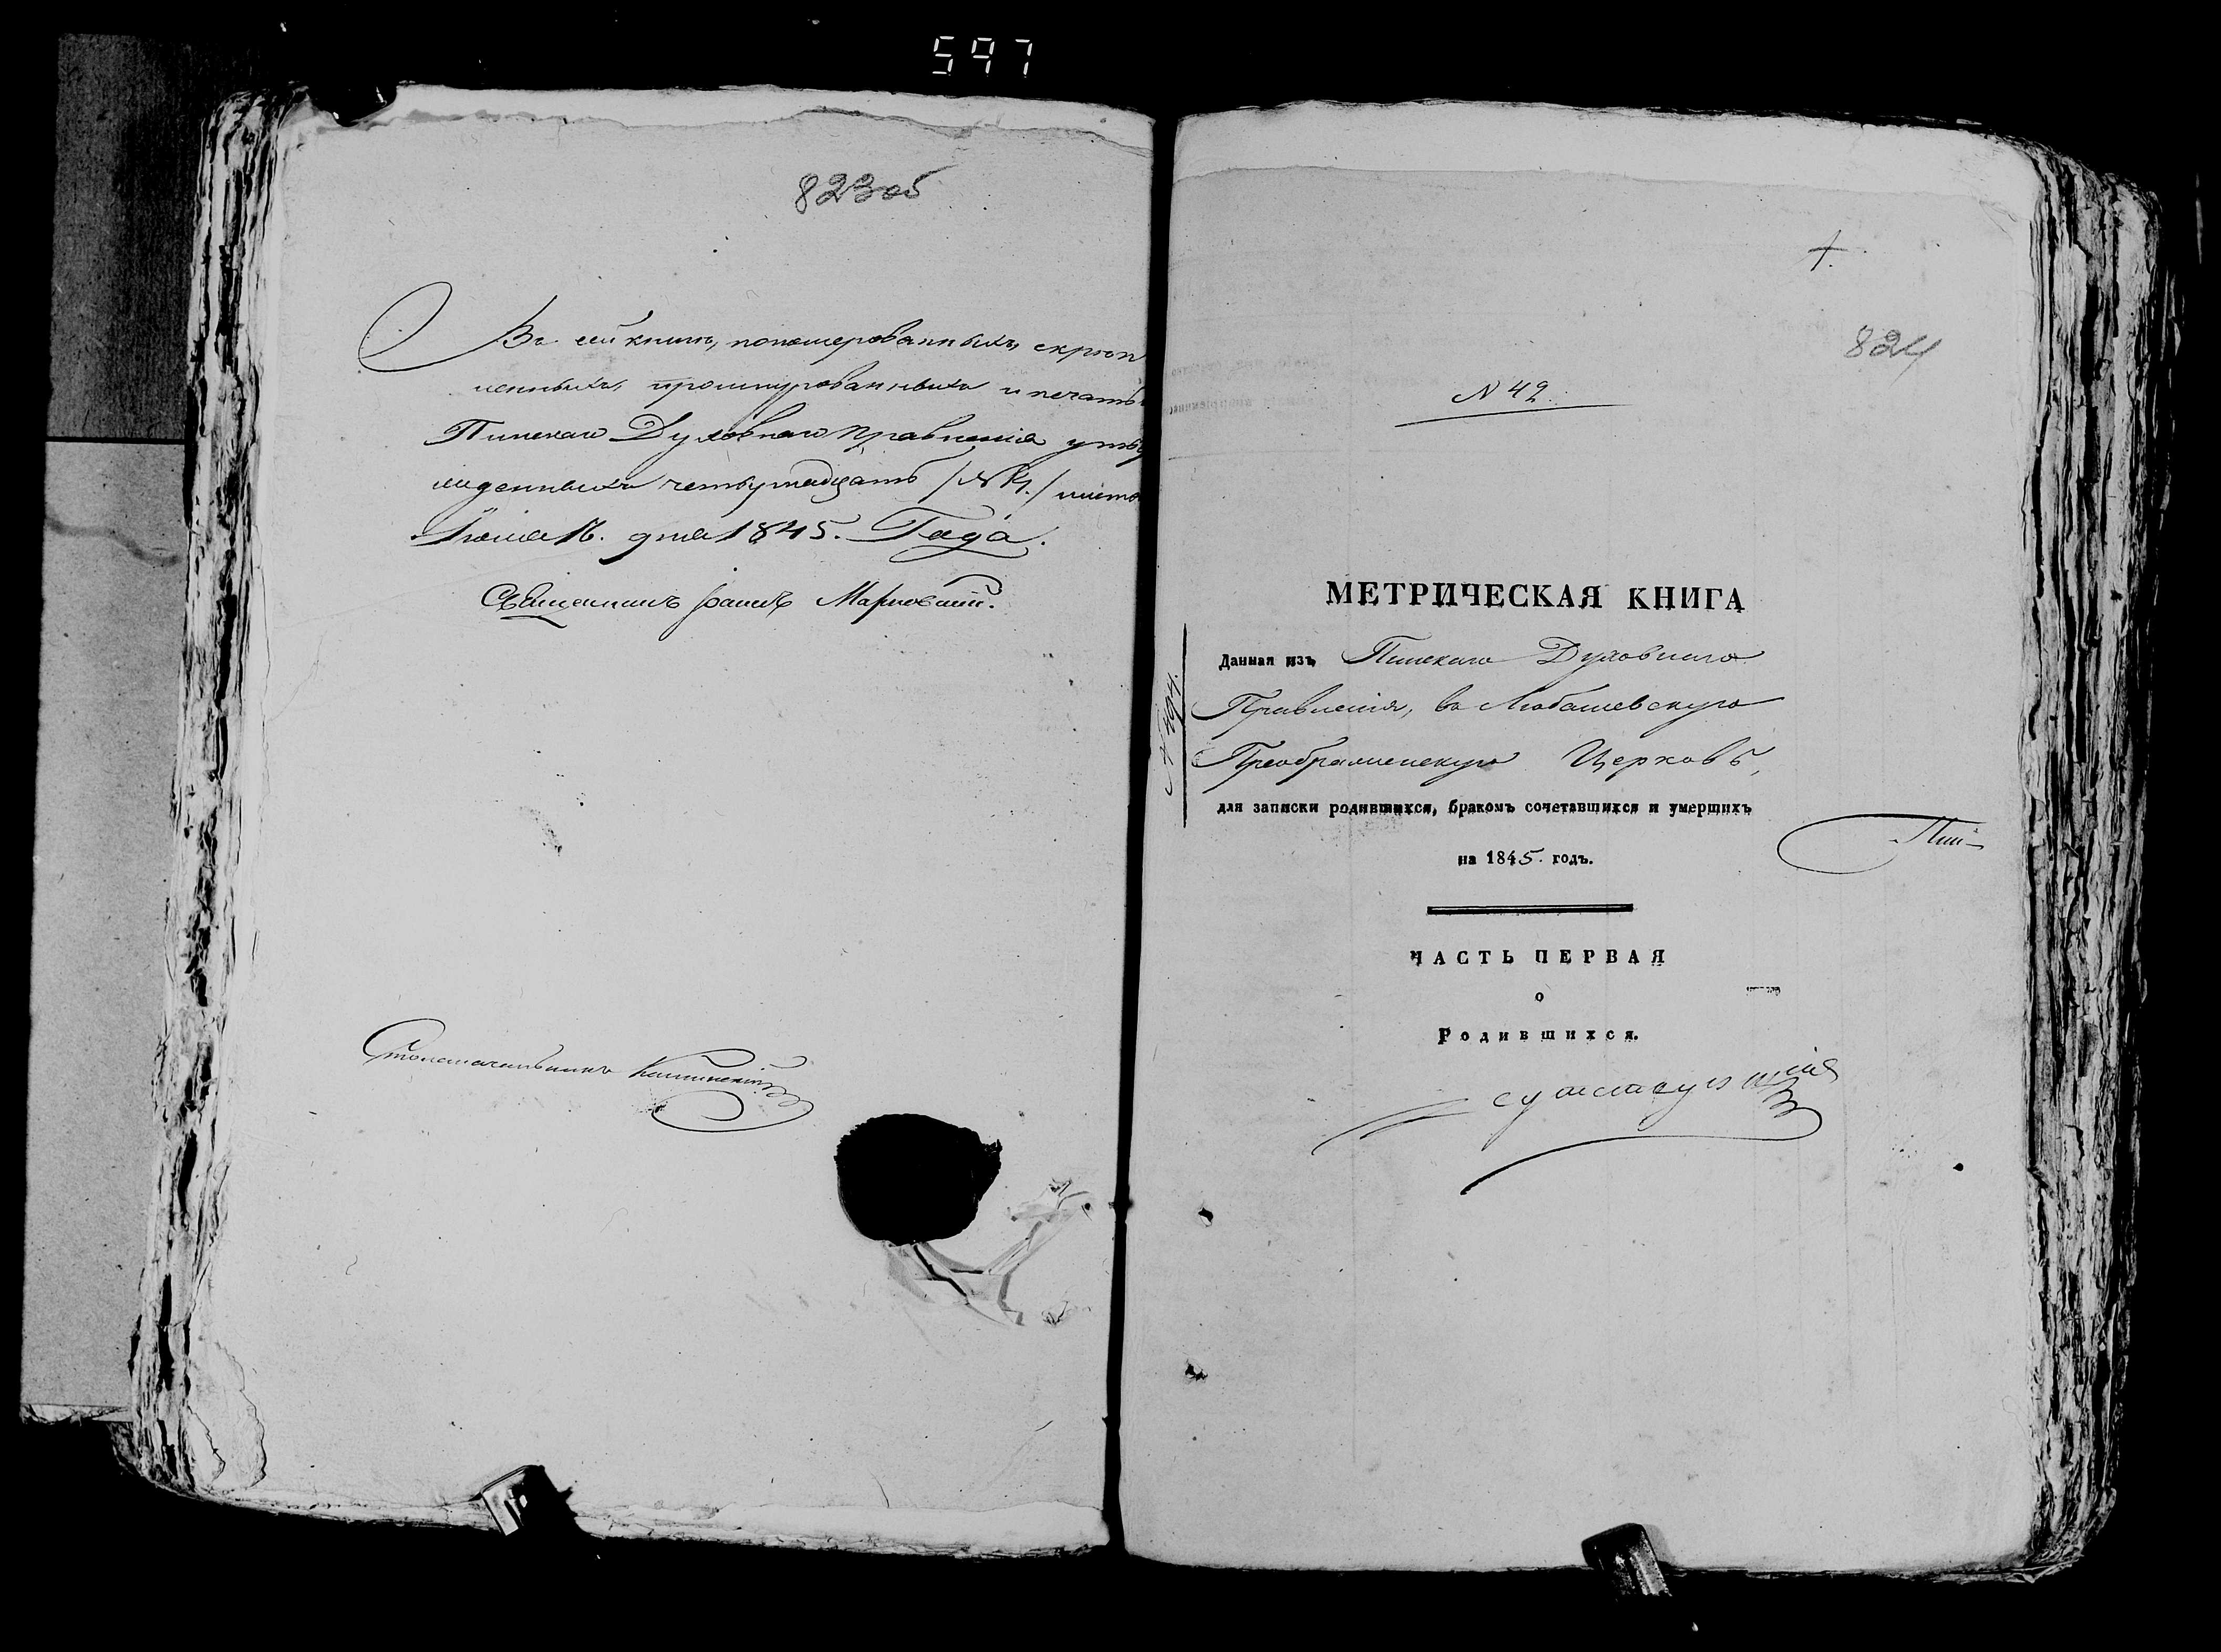 597
823 об
Въ сей книгѣ, пономерованныхъ, скрѣп
ленныхъ, прошнурованныхъ и печатью
Пинскаго Духовнаго Правленія утвер
жденныхъ четырнадцать / № 14. / листо
16. дня 1845. Года.
Священникъ Іоаннъ
Столоначальникъ
824
N 42.
МЕТРИЧЕСКАЯ КНИГА
Данная изъ Пинскаго Духовнаго
Правленія, въ Любашевскую
Преображенскую Церковь,
для записки родившихся, бракомъ сочетавшихся и умершихъ
на 1845. годъ.
Пин-
ЧАСТЬ ПЕРВАЯ
о
Родившихся.